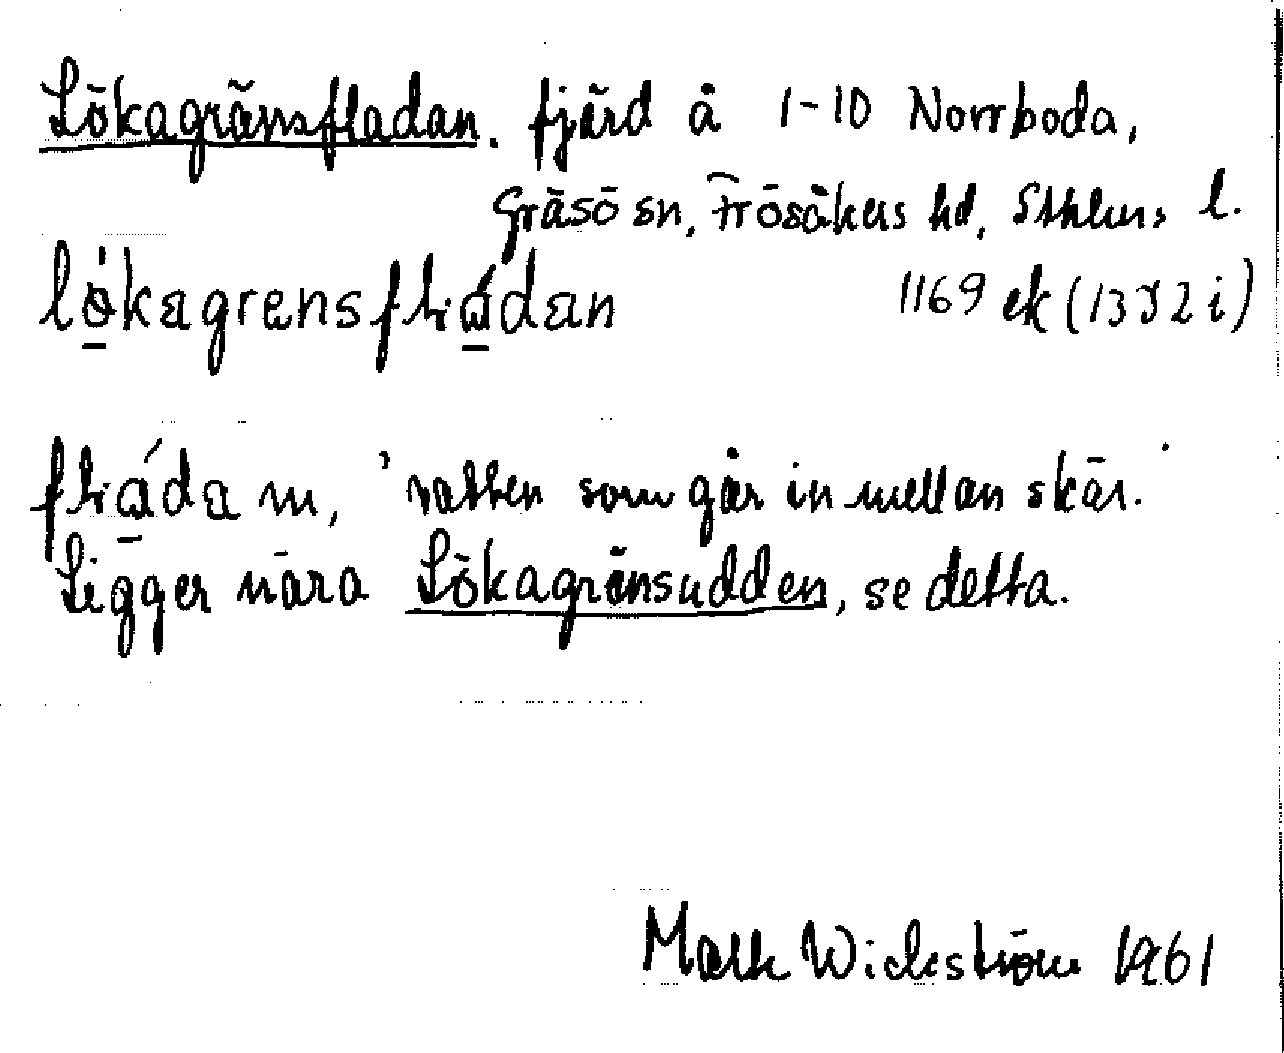 Lökagränsfladan. fjärd å 1-10 Norrboda,
Gräsö sn, Frösåkers hd, Sthlms l.
lö̱́kagrensflá̱dan 1169 ek (13 I 2 i)
flá̱da m, 'vatten som går in mellan skär.'
Ligger nära Lökagränsudden, se detta.
Wickström 1961